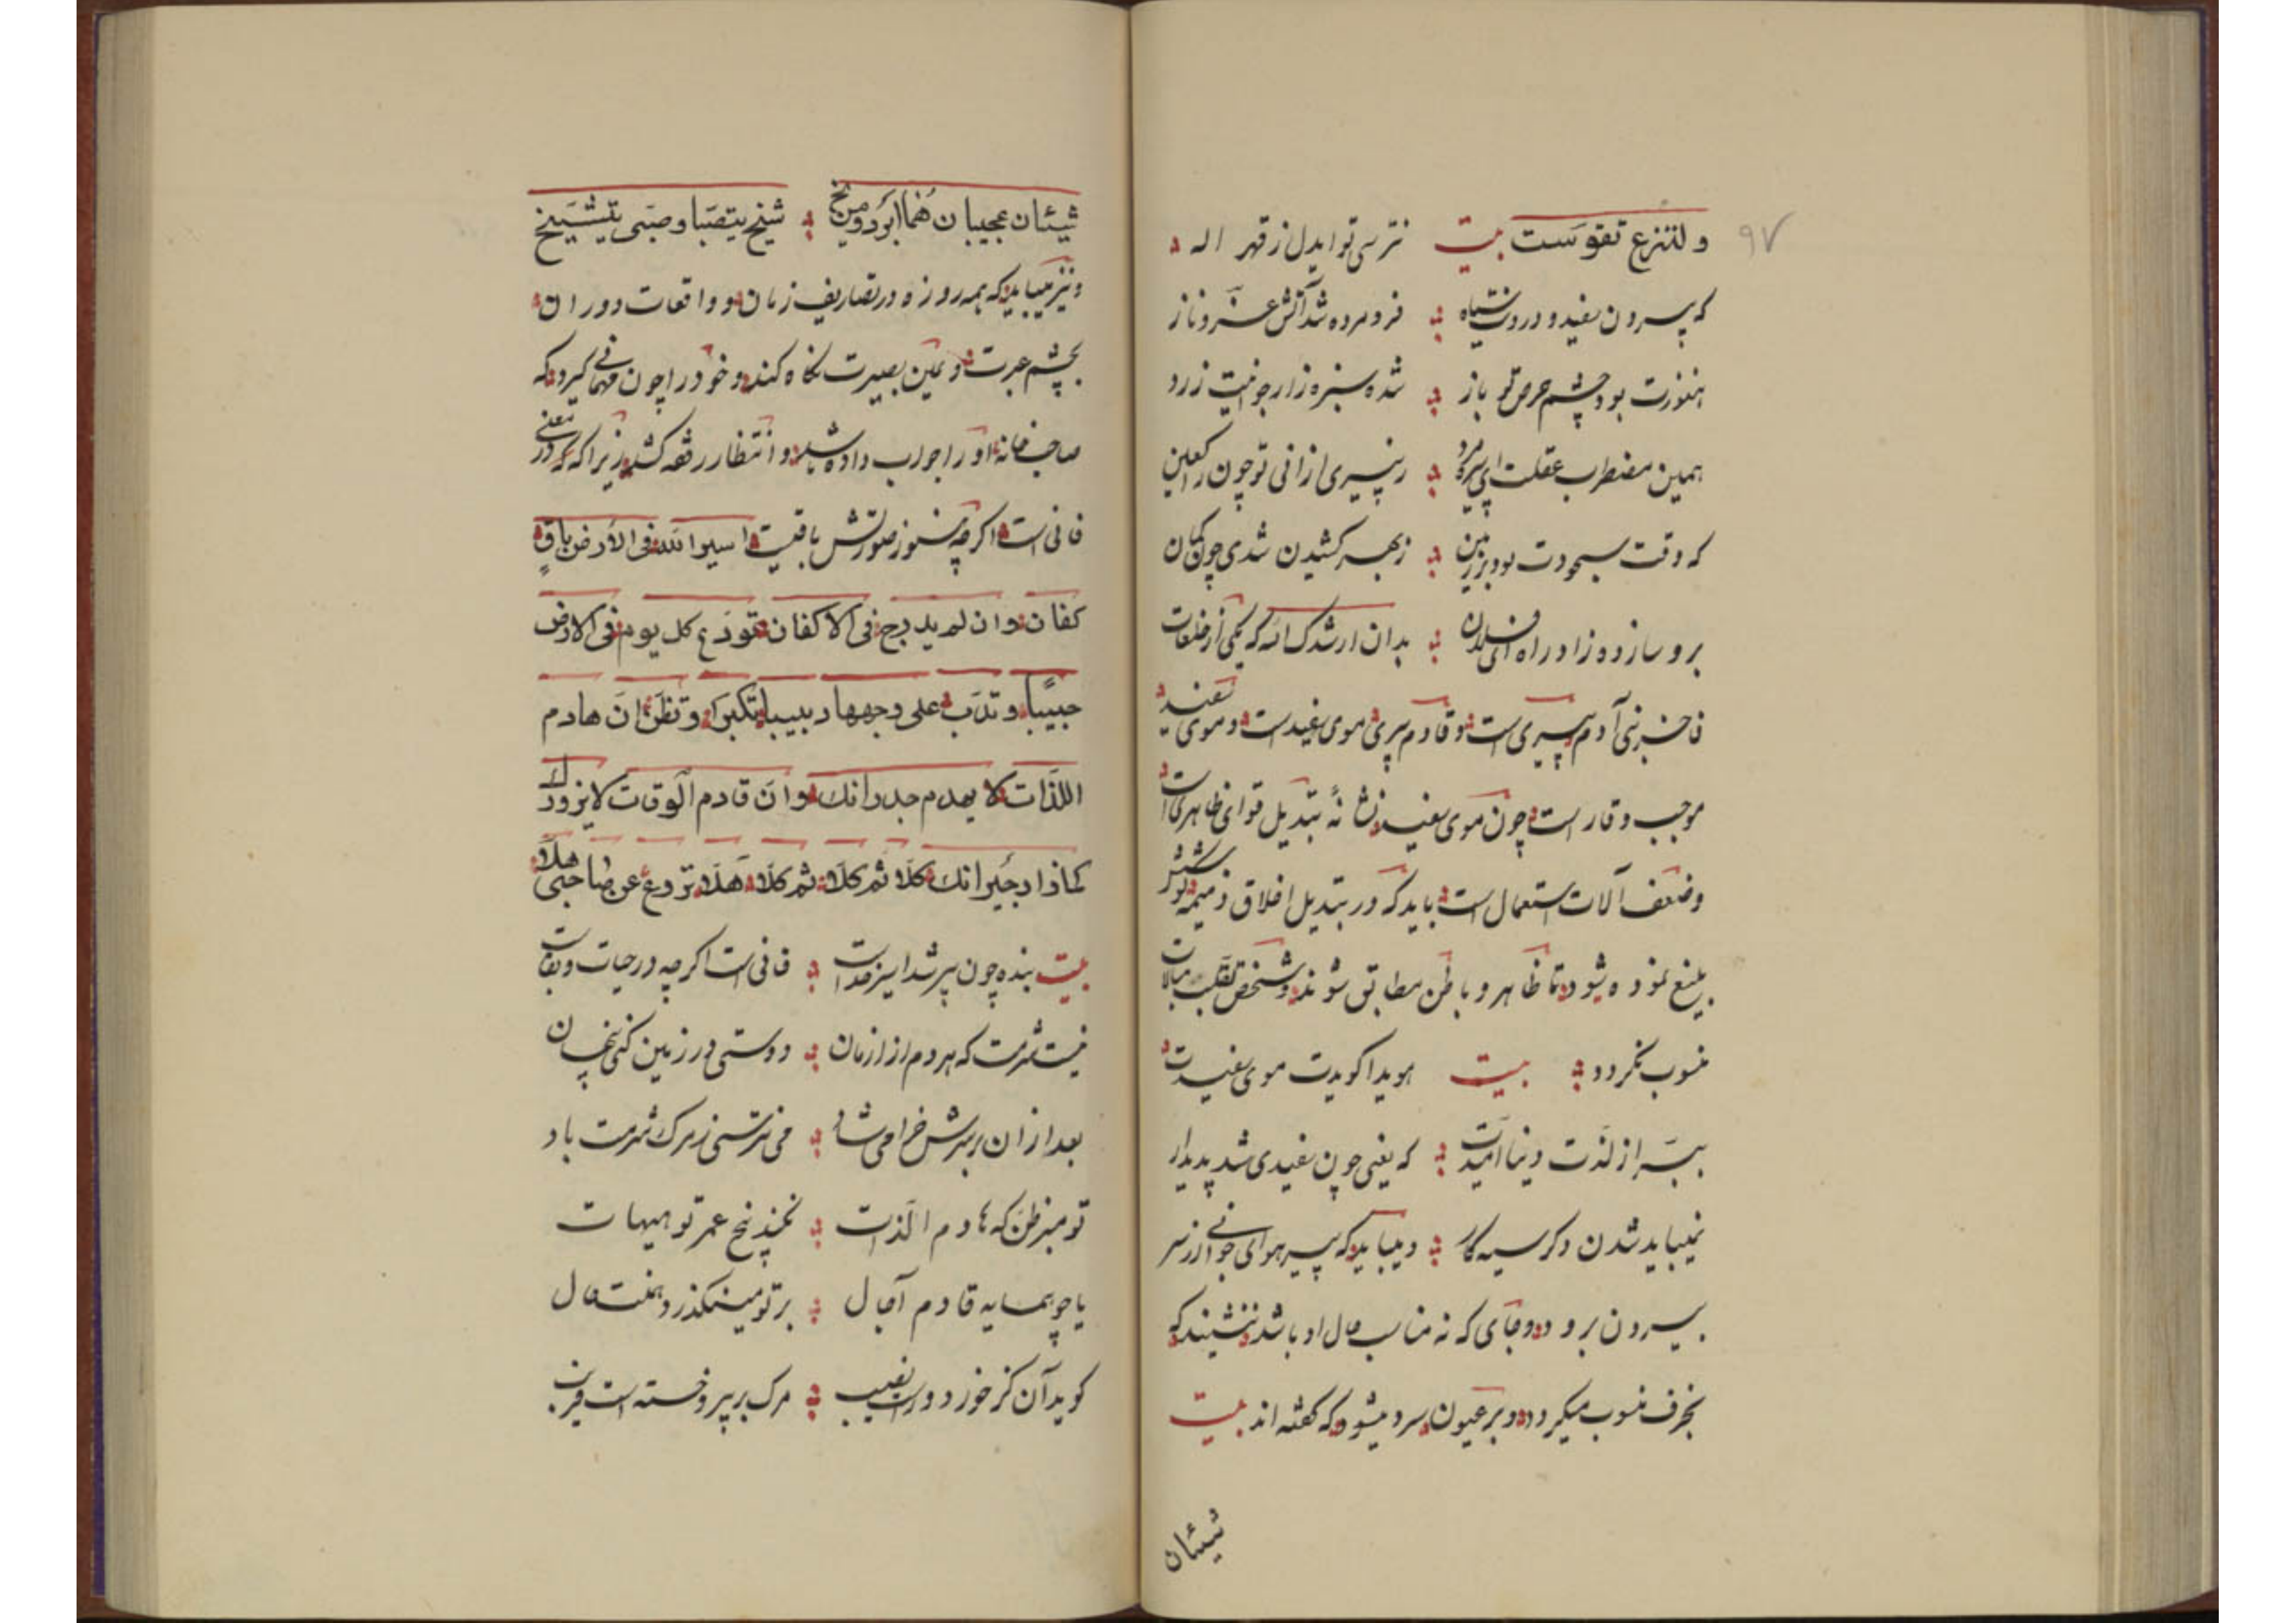 ٩٧
ولتنزع تقوست بیت نترسی تو ایدل ز قهر اله
که بیرون سفید و درونت سیاه فرومرده شد آتش عز و ناز
هنوزت بود چشم حرص تو باز شده سبزه زار جوانیت زرد
همین مضطرب عقلت ای پیره مرد ز پیری از انی تو چون راکعین
که وقت سجودت بود بر زمین ز بهر کشیدن شدی چون کمان
برو ساز ده زاد راه ای فلان بدان ارشدک الله که یکی از خلعات
فاخر بنی آدم پیری است و قادم پیری موی سفید است و موی سفید
موجب وقار است چون موی سفید نشانهٔ تبدیل قوای ظاهری است
وضعف آلات استعمال است باید که در تبدیل اخلاق ذمیمه کوشش
بلیغ نموده شود تا ظاهر و باطن مطابق شوند و شخص تقلب مبالات
منسوب نکردد بیت هویدا کویدت موی سفیدت
ببر از لذت دنیا امیدت که یعنی چون سفیدی شد پدیدار
نمیباید شدن دکر سیه کار و میباید که پیر هوای جوانی از سر
بیرون برود و جای که نه مناسب حال او باشد ننشیند که
بخرف منسوب میکردد و بر عیون سرد میشود که کفته اند بیت
شیئان
شیئان عجیبان هما ابرد من یخ شیخ یتصبا وصبی یتشیخ
و نیز میباید که همه روزه در تصاریف زمان و واقعات دوران
بچشم عبرت و عین بصیرت نکاه کند و خود را چون مهمانی کیرد که
صاحب خانه او را جواب داده باشد و انتظار رقعه کشد زیرا که که در معنی
فانی است اکر چه هنوز صورتش باقیت اسیر الله فی الأرض باقٍ
کفان وان لم یدرج فی الاکفان تودع کل یوم فی الارض
حبیبًا وتدب علی وجهها دبیبا تکبرا وتظن ان هادم
اللذات لا یهدم جدرانك وان قادم الوقات لا یزورك
کماذا دجیرانك کلا ثم کلا ثم کلا هلا تروع عن صاحبی هلا
بیت بنده چون پیر شد اسیر خداست فانی است اکر چه در حیات و بقاست
نیست شرمت که هر دم از ازمان دوستی در زمین کنی پنهان
بعد از ان بر سرش خرامی شاد می نترسی ز مرک شرمت باد
تو مبر ظن که هادم اللذات نکند نخ عمر تو هیهات
یا چو همسایه قادم آجال بر تو می نکذرد بهفت حال
کوید آن کز خرد وراست نصیب مرک بر پیر و خسته است قریب